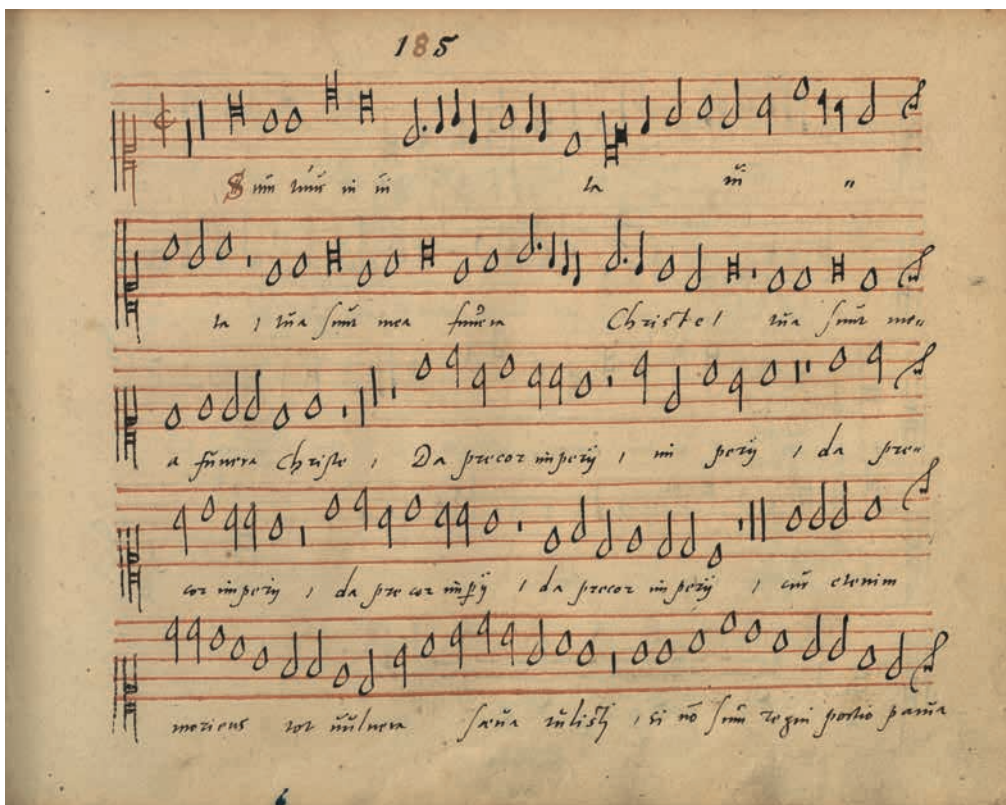 185
Sum tuus in ui ta ui "
ta , tua sunt mea funera Christe , tua sunt me"
a funera Christe , Da precor imperij , im perij , da pre"
cor imperij , da precor imperij , da precor imperij , cur etenim
moriens tot uulnera saeua tulisti , si nō sum regni portio parua
6